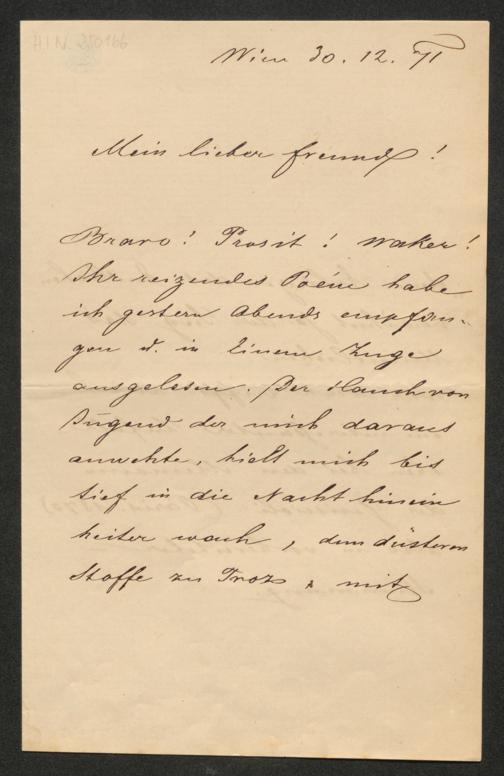 HIN 250166
Wien 30. 12. 71
Mein lieber Freund!
Bravo! Prosit! waker!
Ihr reizendes Poéme habe
ich gestern Abends empfan-
gen u. in Einem Zuge
ausgelesen. Der Hauch von
Jugend der mich daraus
anwehte, hielt mich bis
tief in die Nacht hinein
heiter wach, dem düsteren
Stoffe zu Troz, mit